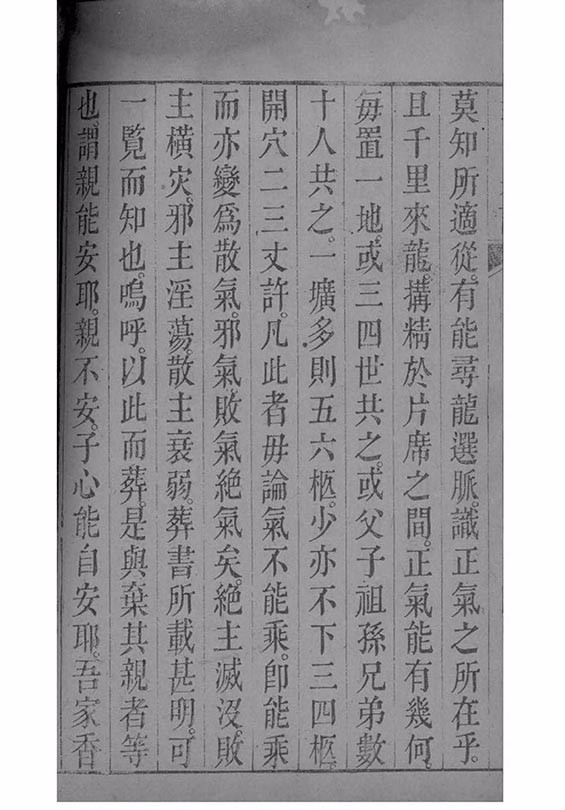 莫知所適從。有能尋龍選脈。識正氣之所在乎。
且千里來龍。搆精於片席之間。正氣能有幾何。
每置一地。或三四世共之。或父子祖孫兄弟數
十人共之。一壙多則五六柩。少亦不下三四柩。
開穴二三丈許。凡此者毋論氣不能乘。卽能乘
而亦變爲散氣。邪氣。敗氣絕氣矣。絕主滅沒。敗
主橫灾。邪主淫蕩。散主衰弱。葬書所載甚明。可
一覽而知也。嗚呼。以此而葬。是與棄其親者等
也。謂親能安耶。親不安。子心能自安耶。吾家香